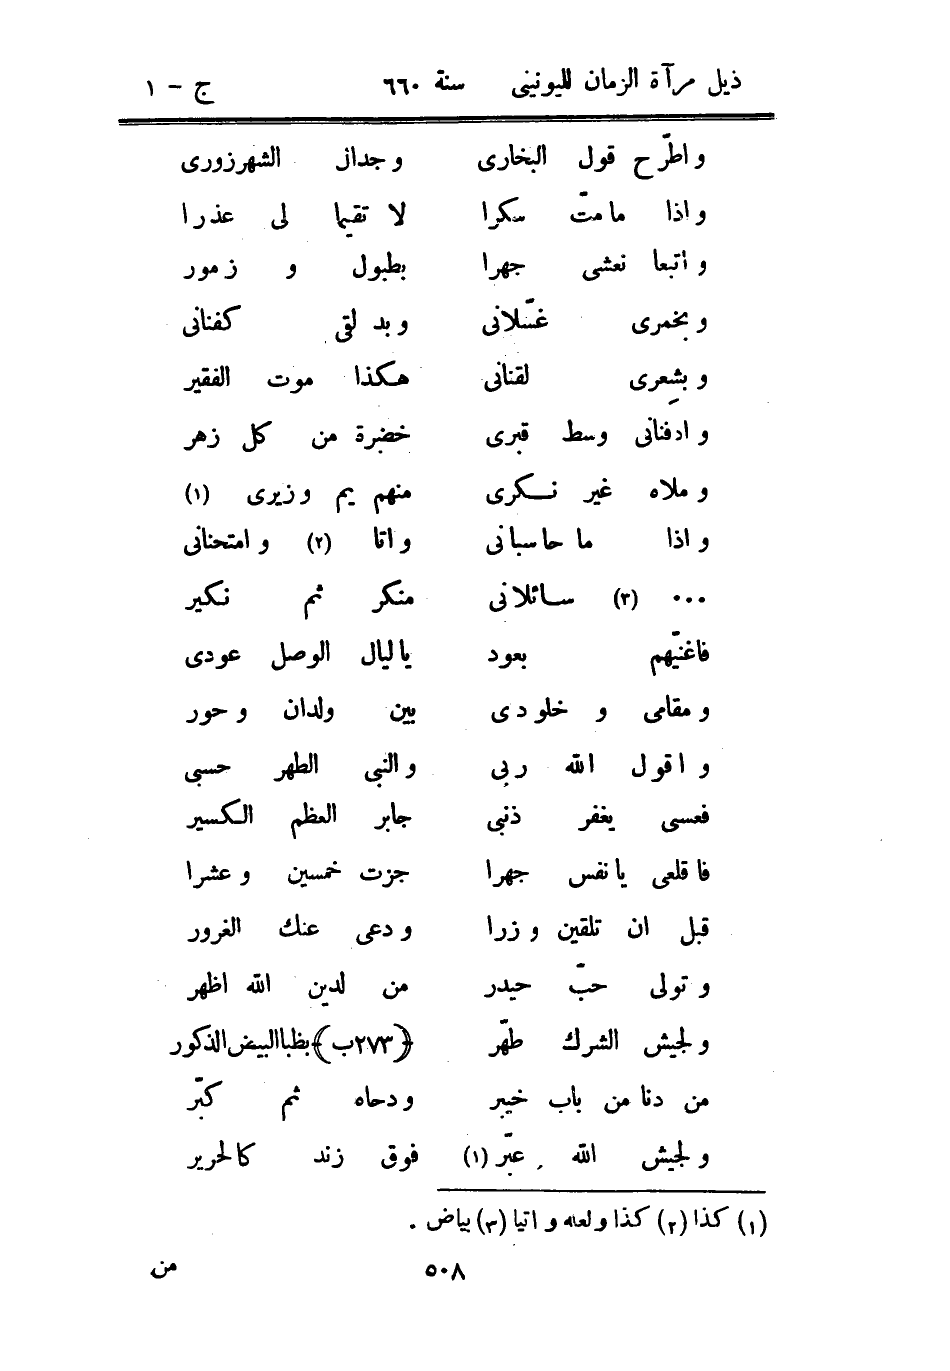 ذيل مرآة الزمان لليونينى سنة ٦٦٠ ج - ١
و اطّرح قول البخارى وجدال الشهرزورى
و اذا مامتّ سكرا لا تقيما لى عذرا
و اتبعا نعشى جهرا بطبول و زمور
و بخمرى غسّلانى وبد لقى كفنانى
و بشعرى لقنانى هكذا موت الفقير
و ادفنانى وسط قبرى خضرة من كل زهر
و ملاه غير نكرى منهم يم وزيرى (١)
و اذا ما حاسبانى و اتا (٢) و امتحنانى
... (٣) سائلانى منكر ثم نكير
فاغنّيهم بعود ياليال الوصل عودى
و مقامى و خلودى بين ولدان و حور
و اقول الله ربى والنبى الطهر حسبى
فعسى يغفر ذنبى جابر العظم الكسير
فاقلعى يانفس جهرا جزت خمسين و عشرا
قبل ان تلقين وزرا ودعى عنك الغرور
و تولى حبّ حيدر من لدين الله اظهر
و لجيش الشرك طهّر ﴿٢٧٣ب﴾ بظبا البيض الذكور
من دنا من باب خيبر ودحاه ثم كبّر
و لجيش الله عبّر (١) فوق زند كالحرير
(١) كذا (٢) كذا ولعله و اتيا (٣) بياض .
٥٠٨ من